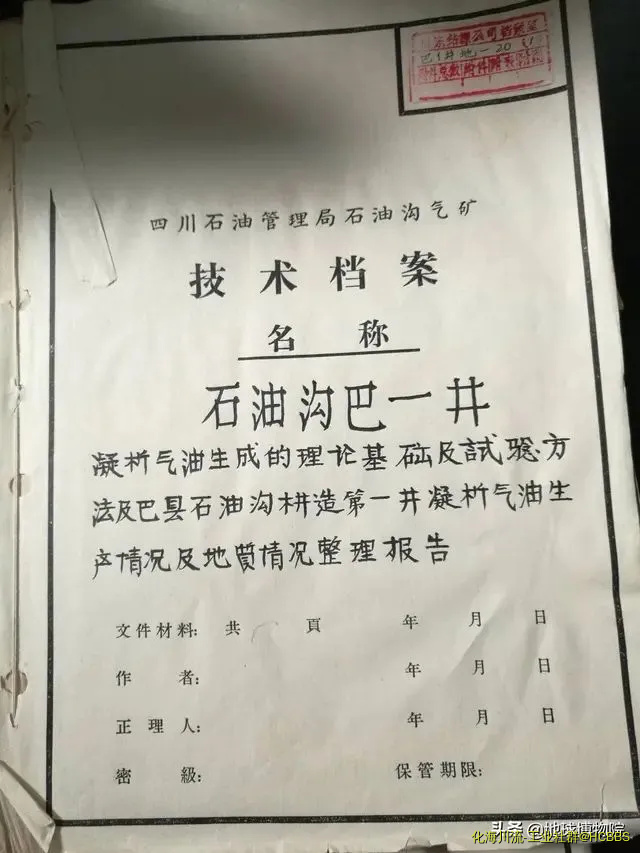 巴1井地-20
四川石油管理局石油沟气矿
技术档案
名称
石油沟巴一井
凝析气油生成的理论基础及試驗方
法及巴县石油沟构造第一井凝析气油生
产情况及地質情况整理报告
文件材料: 共 頁 年 月 日
作者: 年 月 日
正理人: 年 月 日
密級: 保管期限:
头条 @地球博物院
化海川流-工业社群@HCBBS